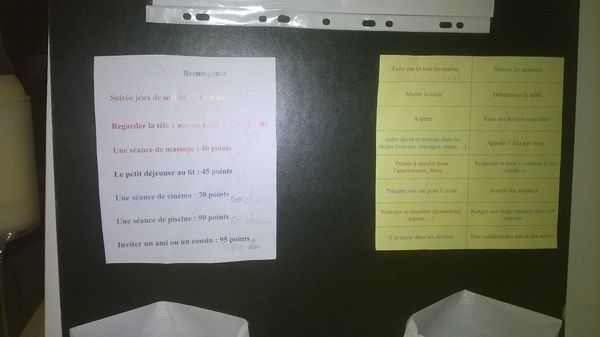 Récompenses
Soirée jeux de
Regarder la télé 1
Une séance de massage : 40 points
Le petit déjeuner au lit : 45 points
Une séance de cinéma : 70 points
Une séance de piscine : 90 points
Inviter un ami ou un cousin : 95 points
Faire son lit tout les matins
Nourrir les animaux
Mettre la table
Débarrasser la table
Aspirer
Faire ses devoirs sans râler
Aider david et maman dans les
tâches (travaux, ménages, repas …)
Appeler 1 fois par mois
Penser à appeler pour
l'anniversaire, fêtes…
Respecter la roue « solution d'un
conflit »
Préparer son sac pour l'école
Nourrir les animaux
Nettoyer sa chambre (poussières,
aspirer, …)
Ranger son linge repasser dans son
armoire
S'avancer dans ses devoirs
Etre solidaire des uns et des autres